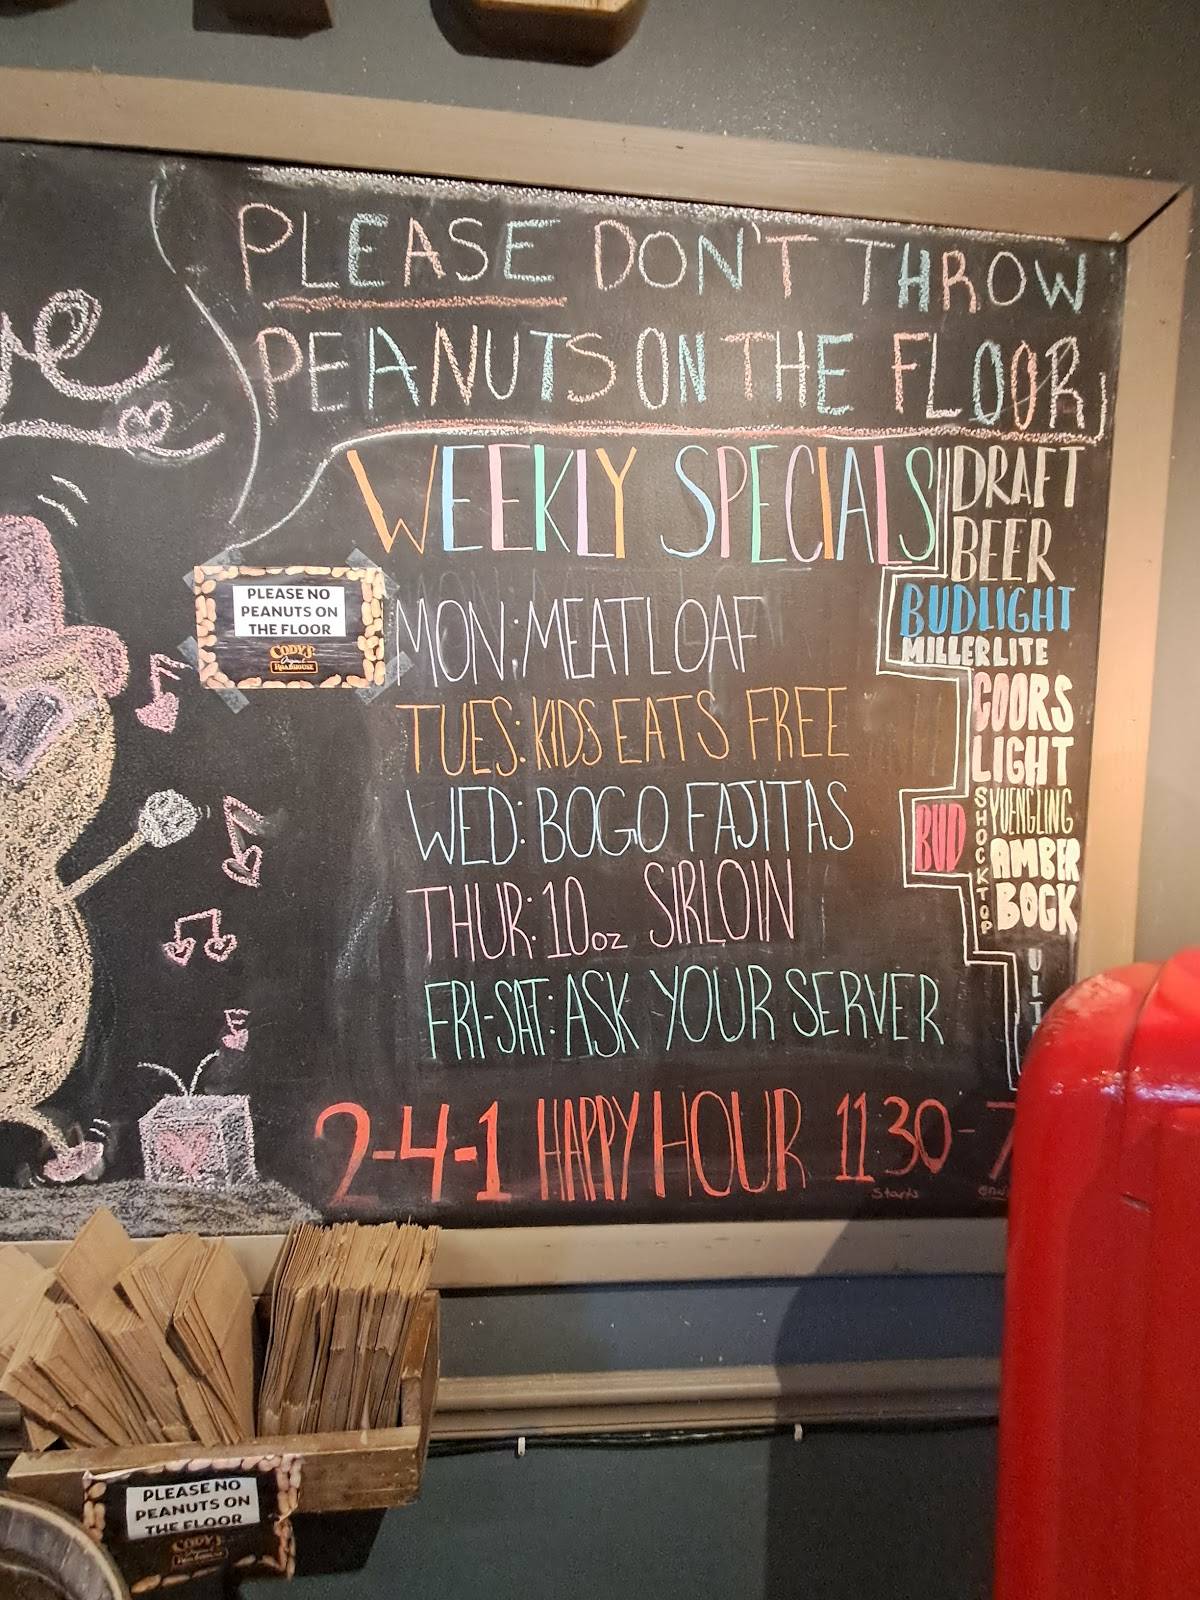 PLEASE DON'T THROW
PEANUTS ON THE FLOOR
WEEKLY SPECIALS
MON: MEATLOAF
TUES: KIDS EAT'S FREE
WED: BOGO FAJITAS
THUR: 10oz SIRLOIN
FRI-SAT: ASK YOUR SERVER
2-4-1 HAPPY HOUR 11:30-7
Starts
DRAFT
BEER
BUDLIGHT
MILLERLITE
COORS
LIGHT
BUD
SHOCKTOP
YUENGLING
AMBER
BOCK
PLEASE NO
PEANUTS ON
THE FLOOR
CODY'S
Original
ROADHOUSE
PLEASE NO
PEANUTS ON
THE FLOOR
CODY'S